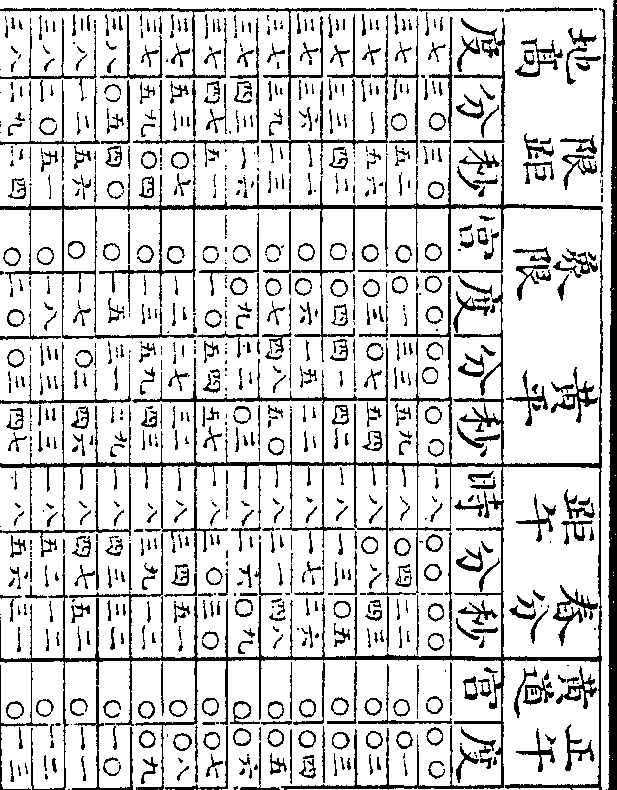 正午黃道 春分距午 黃平象限 限距地高
度 宮 秒 分 時 秒 分 度 宮 秒 分 度
○○ ○ ○○ ○○ 一八 ○○ ○○ ○○ ○ 三○ 三○ 三七
○一 ○ 二二 ○四 一八 五九 三三 ○一 ○ 五二 三○ 三七
○二 ○ 四三 ○八 一八 五四 ○七 ○三 ○ 五六 三一 三七
○三 ○ ○五 一三 一八 四二 四一 ○四 ○ 四二 三三 三七
○四 ○ 二六 一七 一八 二二 一五 ○六 ○ 一一 三六 三七
○五 ○ 四八 二一 一八 五○ 四八 ○七 ○ 二三 三九 三七
○六 ○ ○九 二六 一八 ○三 二二 ○九 ○ 一六 四三 三七
○七 ○ 三○ 三○ 一八 五七 五四 一○ ○ 五一 四七 三七
○八 ○ 五一 三四 一八 三二 二七 一二 ○ ○七 五三 三七
○九 ○ 一二 三九 一八 四三 五九 一三 ○ ○四 五九 三七
一○ ○ 三二 四三 一八 二九 三一 一五 ○ 四○ ○五 三八
一一 ○ 五二 四七 一八 四六 ○二 一七 ○ 五六 一二 三八
一二 ○ 一二 五二 一八 三三 三三 一八 ○ 五一 二○ 三八
一三 ○ 三一 五六 一八 四七 ○三 二○ ○ 二四 二九 三八